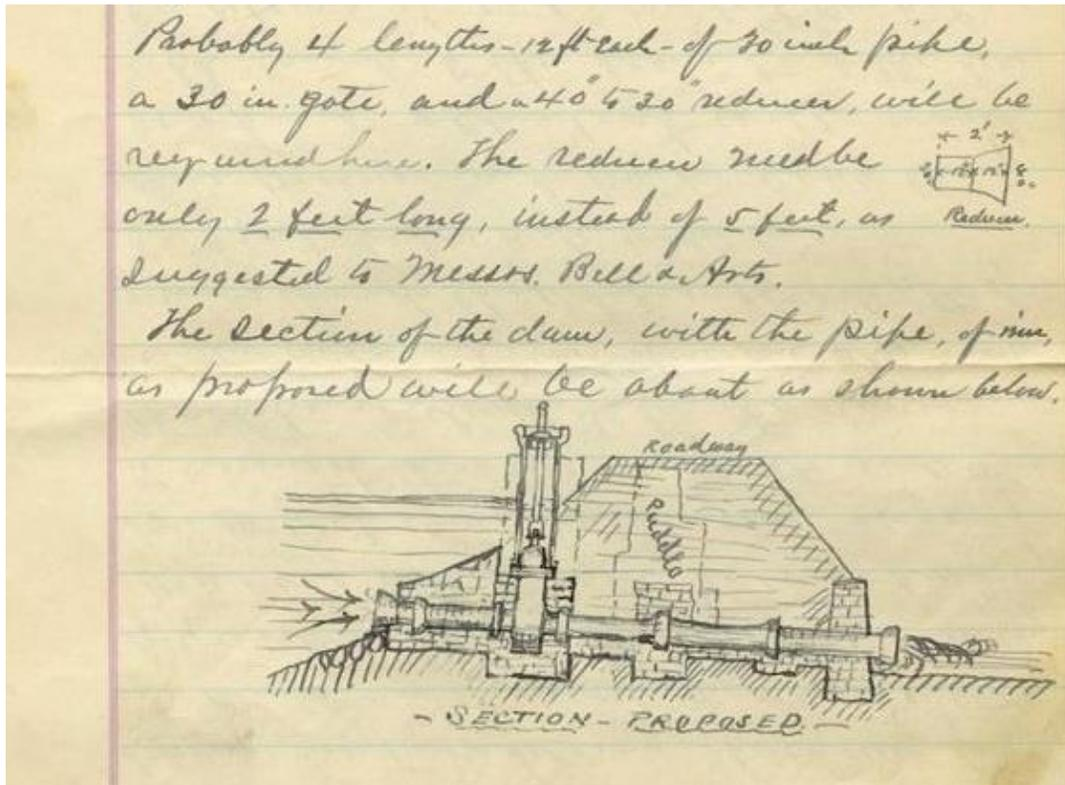 Probably 4 lengths - 12 ft each - of 30 inch pipe,
a 30 in. gate, and a 40" to 30" reducer, will be
required here. The reducer need be
2'
only 2 feet long, instead of 5 feet, as
Reducer.
suggested to Messrs. Bell &
The section of the dam, with the pipe, of
as proposed will be about as shown below.
Roadway
Puddle
- SECTION - PROPOSED -